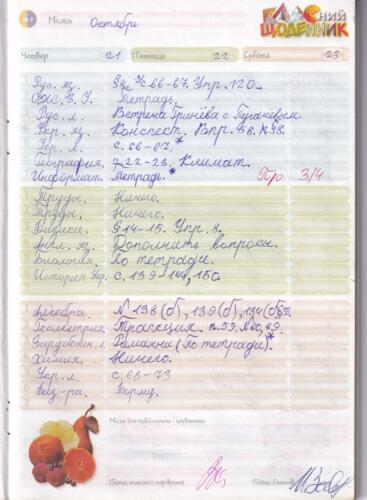 Місяць Октябрь
КЛАСНИЙ ЩОДЕННИК
Четвер 21 П'ятниця 22 Субота 23
Рус. яз. §8, с. 66-67. Упр. 120
Тетрадь.
Рус. л. Встреча Гринёва с Пугачёвым.
Укр. я. Конспект. Впр. 58. §8.
Укр. л. с. 66-67.*
География. §22-23. Климат.
Информат. Тетрадь.* 3/4
Труды. Ничего.
Труды. Ничего.
Физика. §14-15. Упр. 8.
Англ. яз. Дополнить вопросы.
Биология. По тетради.
История Укр. с. 139-144, 150
Алгебра. №138(б), 139(б), 134(б)
Геометрия. Трапеция. п. 59. №60, 69.
Зарубежн. л. Романы (По тетради).*
Химия. Ничего.
Укр. л. с. 68-73
Физ-ра. Форму.
Місце для повідомлень і зауважень
Підпис класного керівника Підпис батьків